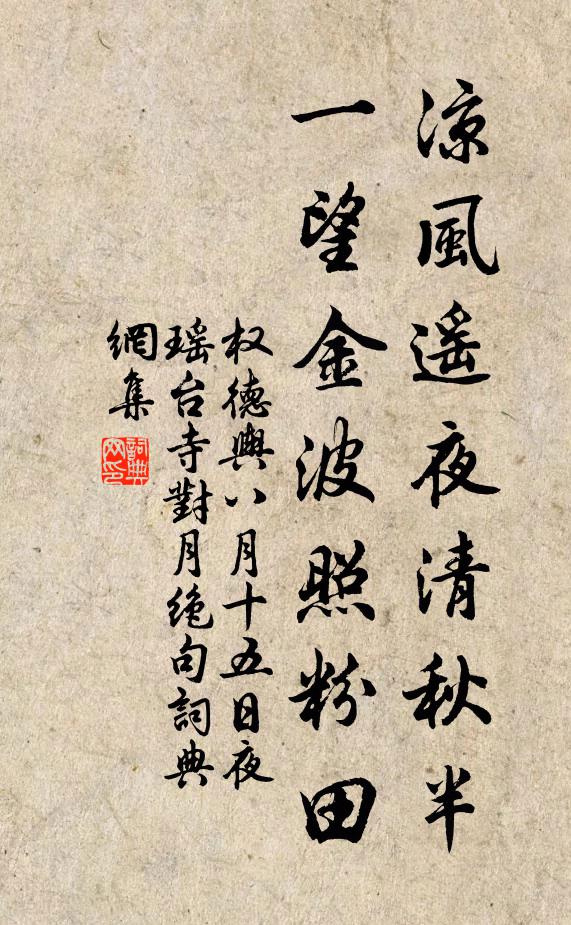 涼風遥夜清秋半
一望金波照粉田
权德輿八月十五日夜
瑶台寺對月绝句詞典
網集
詞典
网印